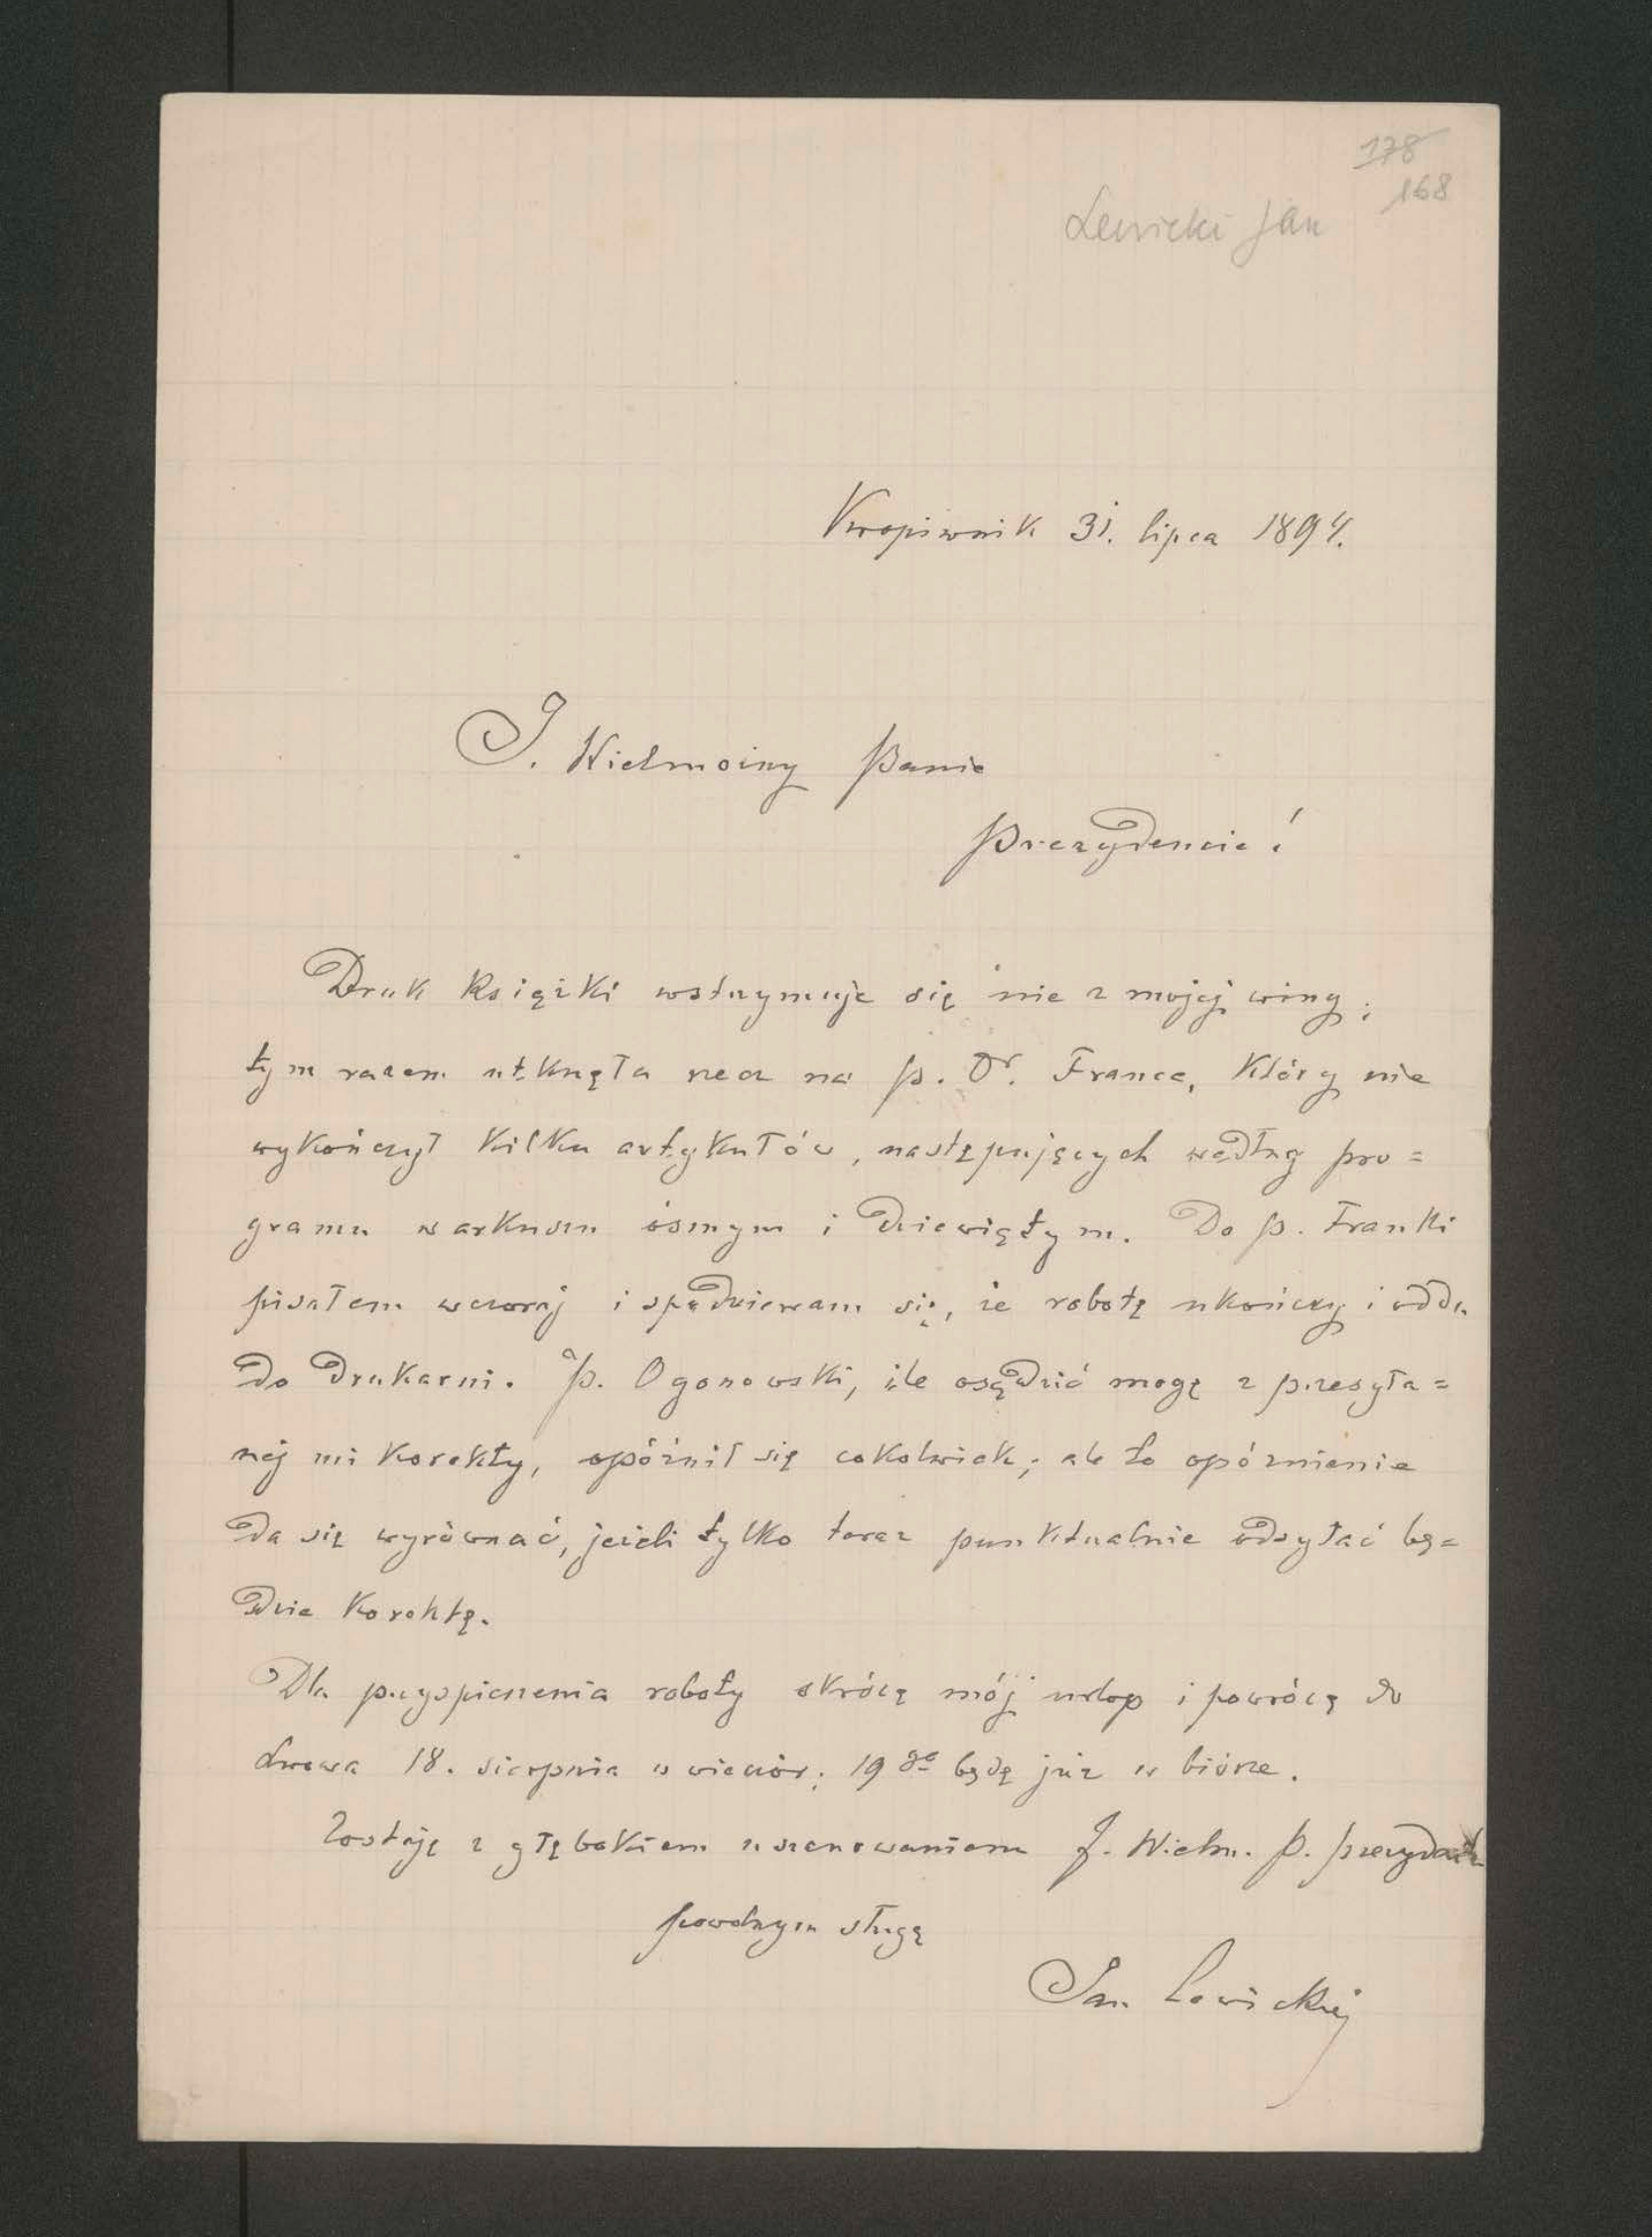 178
168
Lewicki Jan
Kropiwnik 31. lipca 1894.
J. Wielmożny Panie
Prezydencie!
Druk książki wstrzymuje się nie z mojej winy;
tym razem utknęła rzecz na p. Dr. France, który nie
wykończył kilku artykułów, następujących według pro=
gramu w arkuszu ósmym i dziewiątym. Do p. Franki
pisałem wczoraj i spodziewam się, że robotę ukończy i odda
do drukarni. P. Ogonowski, ile osądzić mogę z przesyła=
nej mi korekty, opóźnił się cokolwiek; ale to opóźnienie
da się wyrównać, jeżeli tylko teraz punktualnie odsyłać bę=
dzie korektę.
Dla przyspieszenia roboty skrócę mój urlop i powrócę do
Lwowa 18. sierpnia w wieczór; 19go będę już w biórze.
Zostaję z głębokiem uszanowaniem J. Wielm. P. prezydenta
powolnym sługą
Jan Lewickij